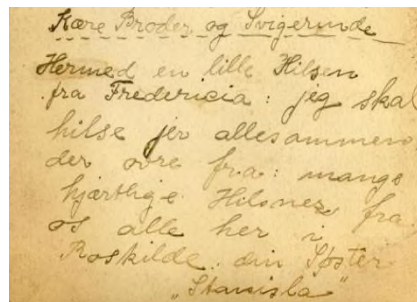 Kære Broder og Svigerinde
Hermed en lille Hilsen
fra Fredericia: jeg skal
hilse jer allesammen
der ovre fra: mange
hjærtlige Hilsner fra
os alle her i
Roskilde. din Søster
„Stanisla"